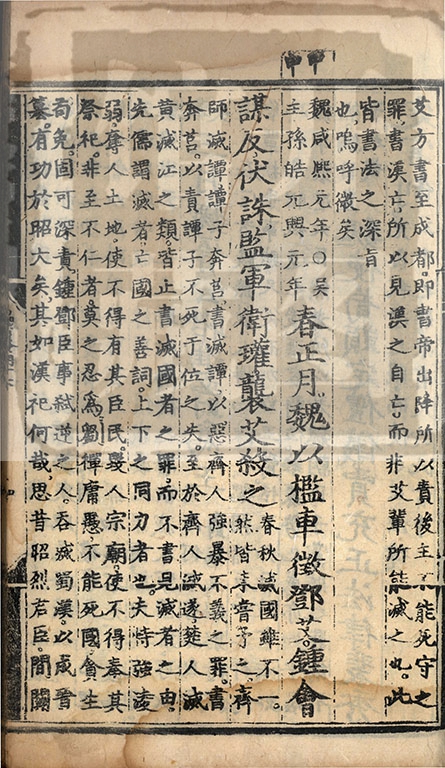 甲申
艾方書至成都即書帝出降所以責後主不能死守之
罪書漢亡所以見漢之自亡而非艾輩所能滅之也此
皆書法之深旨
也嗚呼微矣
魏咸熙元年○吳
主孫皓元興元年
春正月魏以檻車徵鄧艾鍾會
謀反伏誅監軍衛瓘襲艾殺之
春秋滅國雖不一
然皆未嘗予之齊
師滅譚譚子奔莒書滅譚以惡齊人強暴不義之罪書
奔莒以責譚子不死于位之失至於齊人滅遂楚人滅
黃滅江之類皆止書滅國者之罪而不書見滅者之由
先儒謂滅者亡國之善詞上下之同力者也夫恃強凌
弱奪人土地使不得有其臣民毀人宗廟使不得奉其
祭祀非至不仁者莫之忍為劉禪庸愚不能死國貪生
苟免固可深責鍾鄧臣事弑逆之人吞滅蜀漢以成晉
簒有功於昭大矣其如漢祀何哉思昔昭烈君臣間關